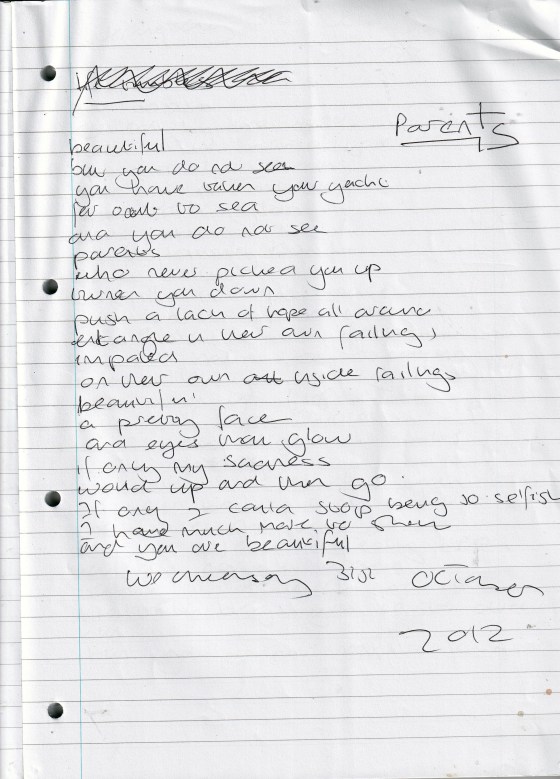 Parents
beautiful
but you do not see
you have taken your yacht
far out to sea
and you do not see
parents
who never picked you up
turned you down
push a lack of hope all around
entangle in their own failings
impaled
on their own inside railings
beautiful
a pretty face
and eyes that glow
if only my sadness
would up and then go.
If only I could stop being so selfish
I have much more to show
and you are beautiful
Wednesday 31st October
2012